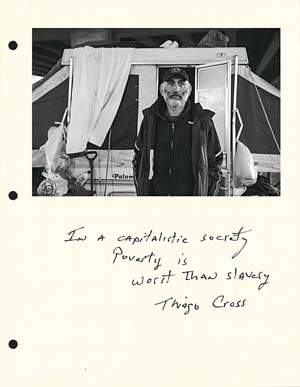 Palom
In a capitalistic society
Poverty is
worst Than slavery
Thiago Cross